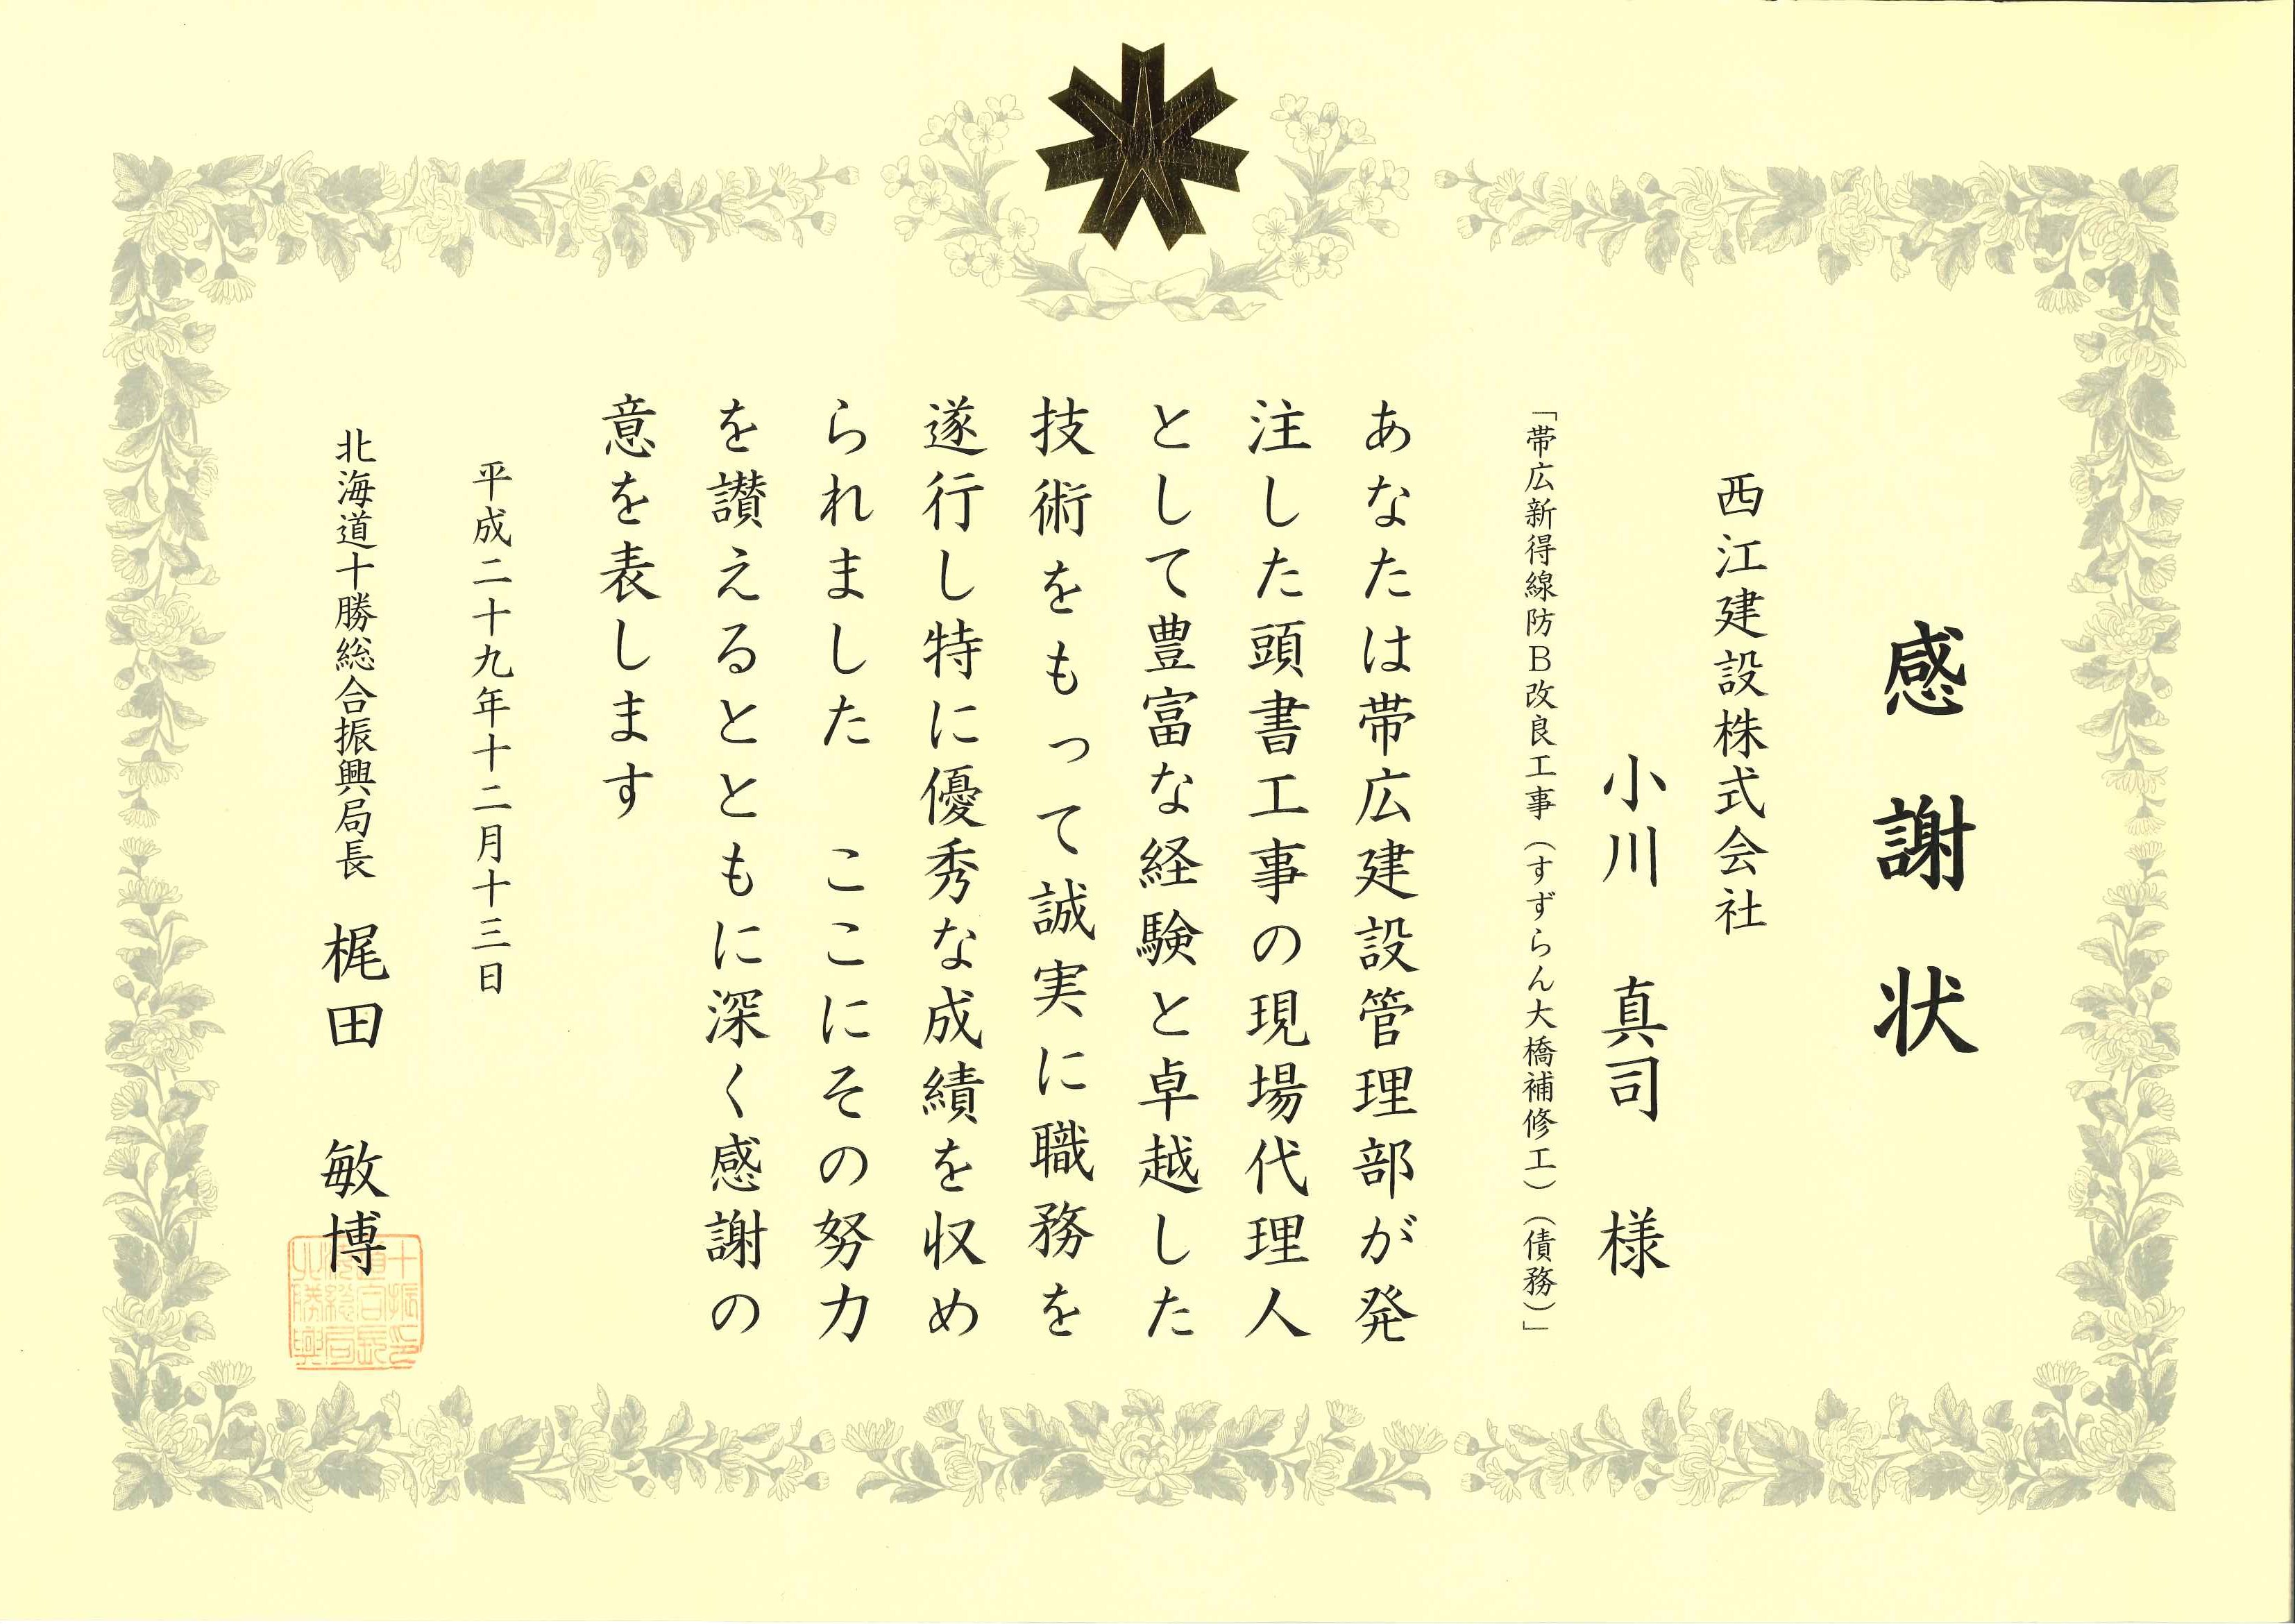 感謝状
西江建設株式会社
小川 真司 様
「帯広新得線防B改良工事(すずらん大橋補修工)(債務)」
あなたは帯広建設管理部が発
注した頭書工事の現場代理人
として豊富な経験と卓越した
技術をもって誠実に職務を
遂行し特に優秀な成績を収め
られました ここにその努力
を讃えるとともに深く感謝の
意を表します
平成二十九年十二月十三日
北海道十勝総合振興局長 梶田 敏博